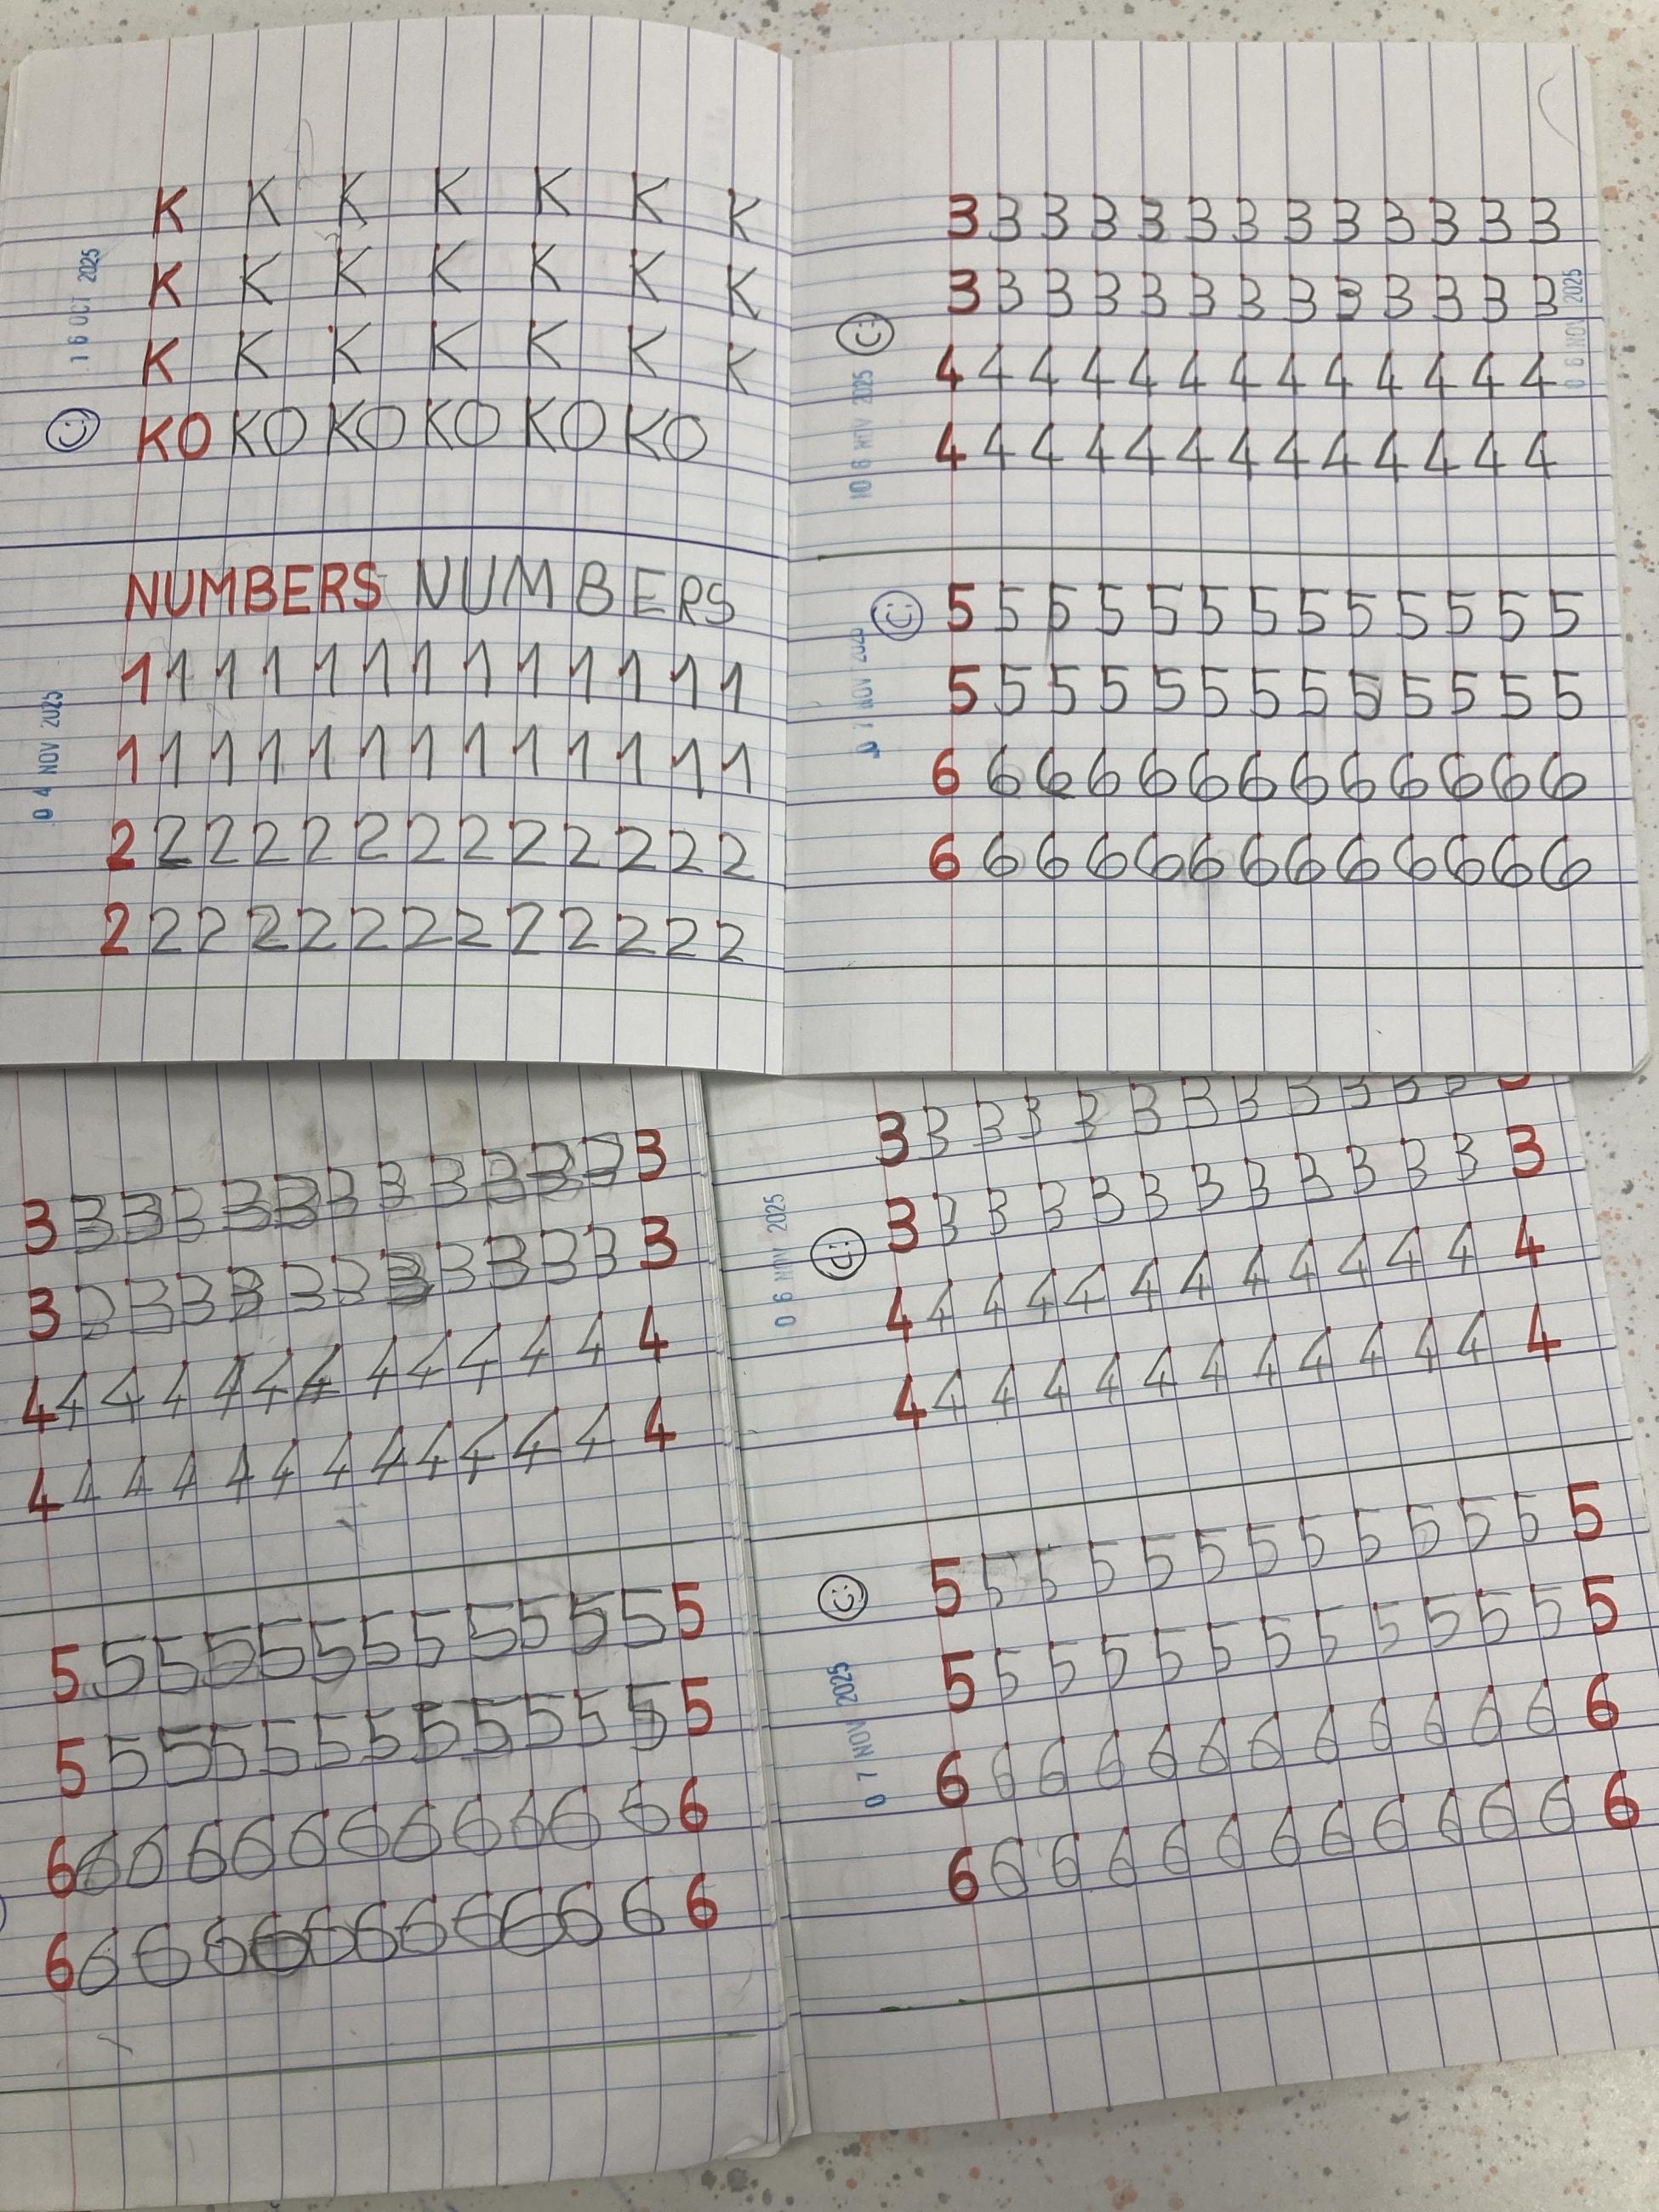 K K K K K K K
K K K K K K K
K K K K K K K
KO KO KO KO KO KO
16 OCT 2025
NUMBERS NUMBERS
1 1 1 1 1 1 1 1 1 1 1 1 1
1 1 1 1 1 1 1 1 1 1 1 1 1
2 2 2 2 2 2 2 2 2 2 2 2 2
2 2 2 2 2 2 2 2 2 2 2 2 2
04 NOV 2025
3 3 3 3 3 3 3 3 3 3 3 3 3
3 3 3 3 3 3 3 3 3 3 3 3 3
4 4 4 4 4 4 4 4 4 4 4 4 4
4 4 4 4 4 4 4 4 4 4 4 4 4
06 NOV 2025
06 NOV 2025
5 5 5 5 5 5 5 5 5 5 5 5 5
5 5 5 5 5 5 5 5 5 5 5 5 5
6 6 6 6 6 6 6 6 6 6 6 6 6
6 6 6 6 6 6 6 6 6 6 6 6 6
07 NOV 2025
3 3 3 3 3 3 3 3 3 3 3 3 3
3 3 3 3 3 3 3 3 3 3 3 3 3
4 4 4 4 4 4 4 4 4 4 4 4 4
4 4 4 4 4 4 4 4 4 4 4 4 4
5 5 5 5 5 5 5 5 5 5 5 5 5
5 5 5 5 5 5 5 5 5 5 5 5 5
6 6 6 6 6 6 6 6 6 6 6 6 6
6 6 6 6 6 6 6 6 6 6 6 6 6
3 3 3 3 3 3 3 3 3 3 3 3 3
3 3 3 3 3 3 3 3 3 3 3 3 3
4 4 4 4 4 4 4 4 4 4 4 4 4
4 4 4 4 4 4 4 4 4 4 4 4 4
06 NOV 2025
5 5 5 5 5 5 5 5 5 5 5 5 5
5 5 5 5 5 5 5 5 5 5 5 5 5
6 6 6 6 6 6 6 6 6 6 6 6 6
6 6 6 6 6 6 6 6 6 6 6 6 6
07 NOV 2025